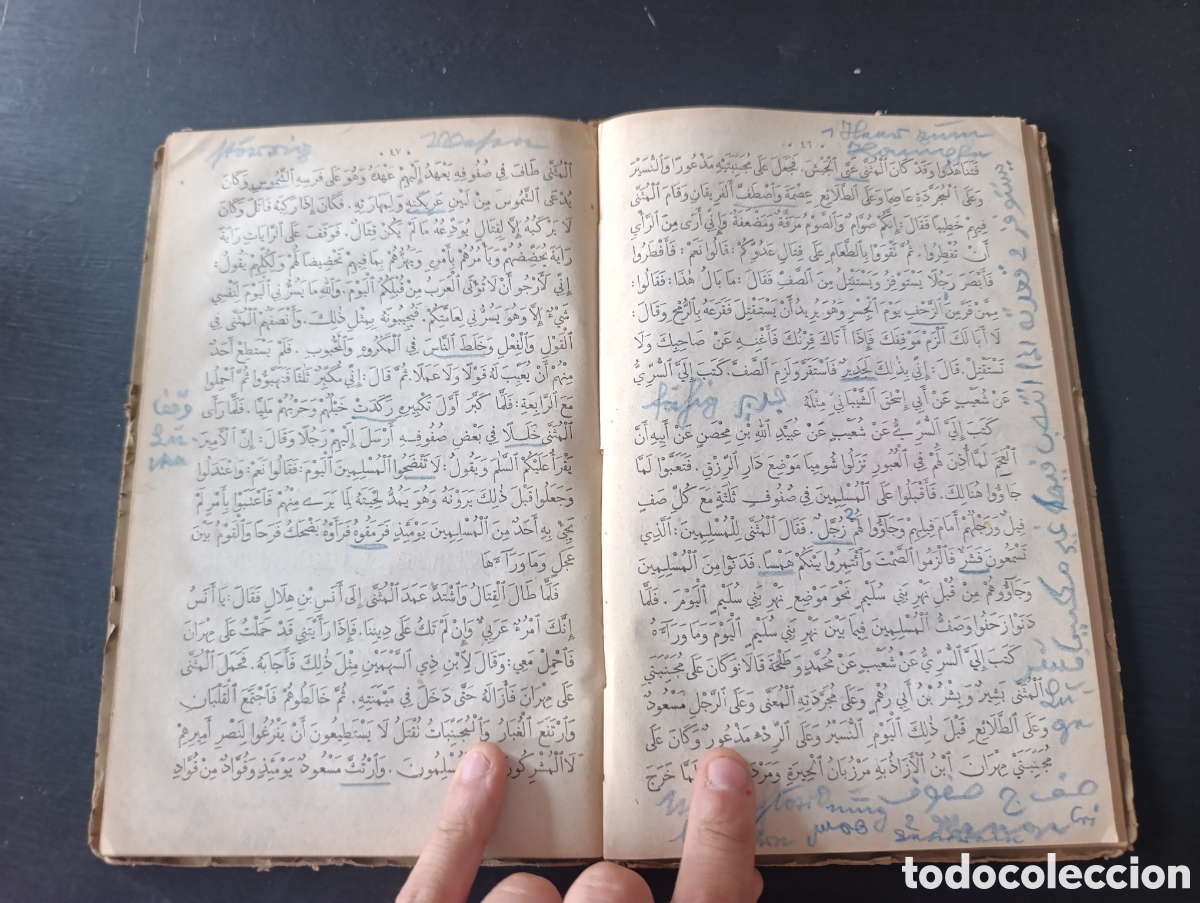 ٤٦
فتناهدوا وقد كان المثنى عبى الجيش فجعل على مجنبتيه مذعورا والنسير
وعلى المجردة عاصما وعلى الطلائع عصمة واصطف الفريقان وقام المثنى
فيهم خطيبا فقال: إنكم صوام والصوم مرقة ومضعفة وإني أرى من الرأي
أن تفطروا ثم تقووا بالطعام على قتال عدوكم. قالوا نعم: فأفطروا
فأبصر رجلا يستوفز ويستنتل من الصف فقال: ما بال هذا: فقالوا:
ممن فر من الزحف يوم الجسر وهو يريد أن يستقتل فقرعه بالرمح وقال:
لا أبا لك الزم موقفك فإذا أتاك قرنك فأغنه عن صاحبك ولا
تستقتل. قال: إني بذلك لجدير فاستقر ولزم الصف. كتب إلي السري
عن شعيب عن أبي إسحق الشيباني مثله
جدير fähig
كتب إلي السري عن شعيب عن عبيد الله بن محصن عن أبيه أن
العجم لما أذن لهم في العبور نزلوا شوميا موضع دار الرزق. فتعبوا لما
جاؤوا هنالك. فأقبلوا على المسلمين في صفوف ثلثة مع كل صف
فيل ورجلهم أمام فيلهم وجاؤوا لهم زجل. فقال المثنى للمسلمين: الذي
تسمعون فشل فالزموا الصمت وأتمروا بينكم همسا. فدنوا من المسلمين
وجاؤوهم من قبل نهر بني سليم نحو موضع نهر بني سليم اليوم. فلما
دنوا زحفوا وصف المسلمين فيما بين نهر بني سليم اليوم وما وراءه
كتب إلي السري عن شعيب عن محمد وطلحة قالا وكان على مجنبتي
المثنى بشير وبشر بن أبي رهم وعلى مجردته المعنى وعلى الرجل مسعود
وعلى الطلائع قبل ذلك اليوم النسير وعلى الردء مذعور وكان على
مجنبتي مهران ابن الآزاذبه مرزبان الحيرة لما خرج
صف ج صفوف
٤٧
المثنى طاف في صفوفه يعهد إليهم عهده وهو على فرسه الشموس وكان
يدعى الشموس من لين عريكته ولمهارته. فكان إذا ركبه قاتل وكان
لا يركبه إلا لقتال يودعه ما لم يكن قتال. فوقف على الرايات راية
راية يحضضهم ويأمرهم بأمره ويهزهم بما فيهم تحضيضا لهم ولكلهم يقول:
إني لأرجو أن لا تؤتى العرب من قبلكم اليوم. والله ما يسرني اليوم لنفسي
شيء إلا وهو يسرني لعامتكم. فيجيبونه بمثل ذلك. وأنصفهم المثنى في
القول والفعل وخلط الناس في المكروه والمحبوب. فلم يستطع أحد
منهم أن يعيب له قولا ولا عملا. ثم قال: إني مكبر ثلثا فتهيؤوا ثم احملوا
مع الرابعة: فلما كبر أول تكبيرة ركدت خيلهم وحربهم مليا. فلما رأى
المثنى خللا في بعض صفوفه أرسل إليهم رجلا وقال: إن الأمير
يقرأ عليكم السلم ويقول: لا تفضحوا المسلمين اليوم: فقالوا نعم: واعتدلوا
وجعلوا قبل ذلك يرونه وهو يمد لحيته لما يرى منهم فأعتبوا بأمر لم
يجئ به أحد من المسلمين يومئذ فرمقوه فرأوه يضحك فرحا والقوم بين
عجل وما وراءها
فلما طال القتال واشتد عمد المثنى إلى أنس بن هلال فقال: يا أنس
إنك امرء عربي وإن لم تك على ديننا. فإذا رأيتني قد حملت على مهران
فاحمل معي: وقال لابن ذي السهمين مثل ذلك فأجابه. فحمل المثنى
على مهران فأزاله حتى دخل في ميمنته. ثم خالطوهم فاجتمع القلبان
وارتفع الغبار والمجنبات تقتل لا يستطيعون أن يفرغوا لنصر أميرهم
لا المشركون المسلمون. وارتث مسعود يومئذ وقواد من قواد
todocoleccion